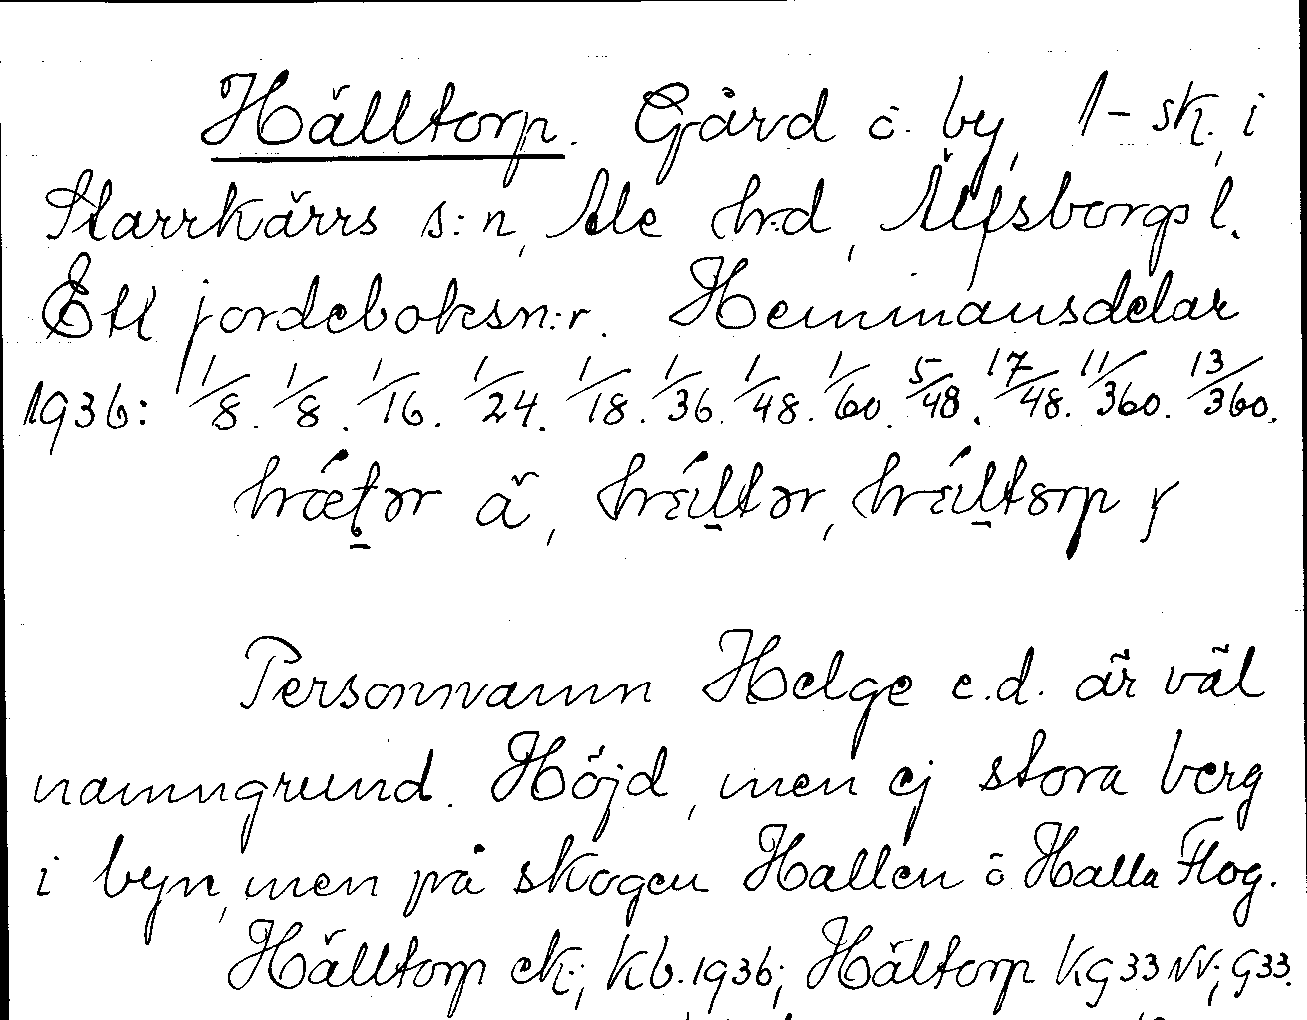 Hälltorp. Gård o. by, 1 - sk. i
Starrkärrs s:n, Ale hrd, Älfsborgs l.
Ett jordeboksn:r. Hemmansdelar
1936: 1/8. 1/8. 1/16. 1/24. 1/18. 1/36. 1/48. 1/60. 5/48. 17/48. 11/360. 13/360.
ä,
Personnamn Helge e.d. är väl
namngrund. Höjd, men ej stora berg
i byn, men på skogen Hallen o Halla Flog.
Hälltorp ek.; Kb. 1936; Hältorp KG33NV; G33.